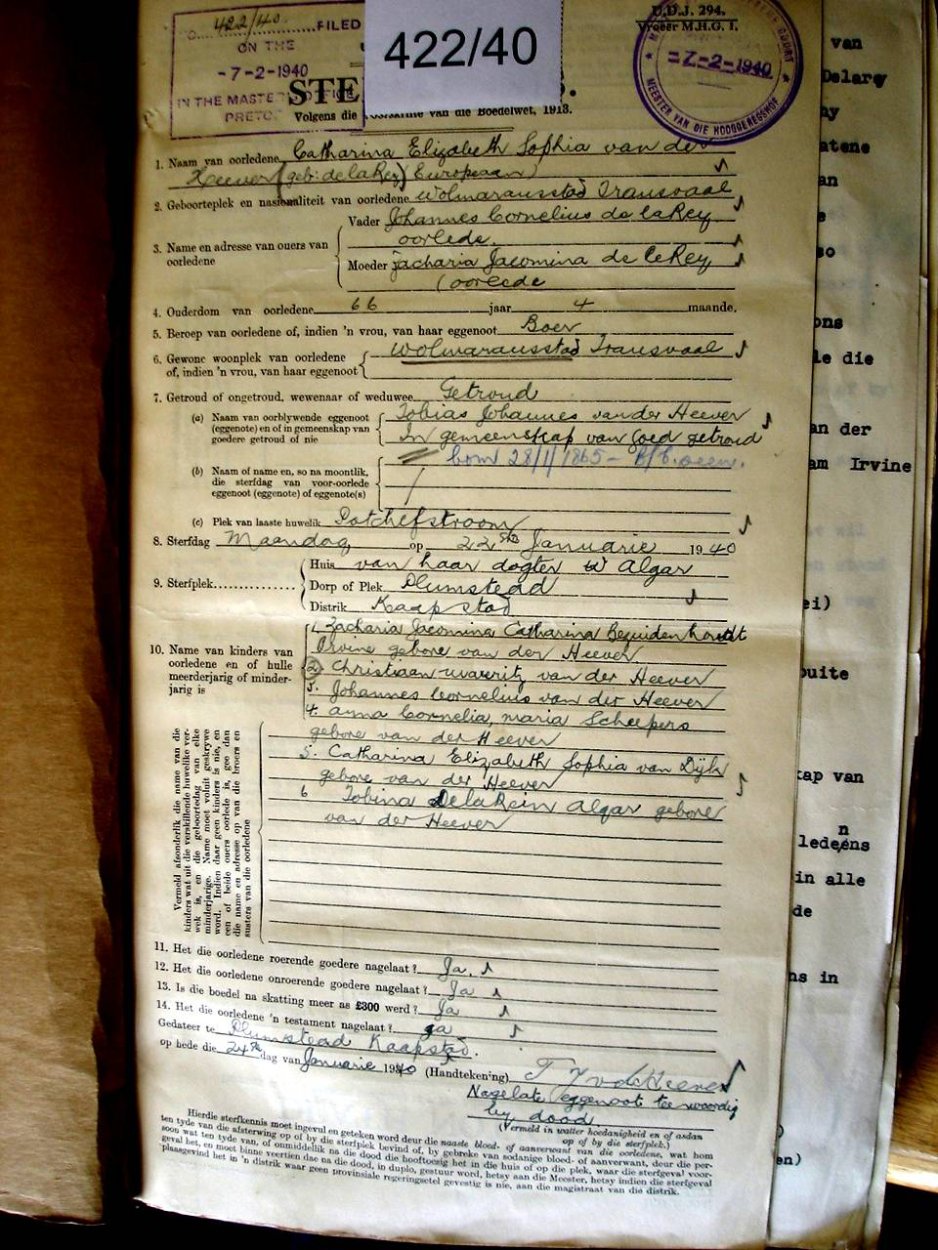 422/40 FILED
ON THE
-7-2-1940
IN THE MASTER
PRETO
422/40
U.D.J. 294.
Vroeër M.H.G. 1.
-7-2-1940
MEESTER VAN DIE HOOGGEREGSHOF
STE
Volgens die van die Boedelwet, 1913.
1. Naam van oorledene Catharina Elizabeth Sophia van der
Heever (geb: de la Rey) Europeaan
2. Geboorteplek en nasionaliteit van oorledene Wolmaransstad Transvaal
3. Name en adresse van ouers van oorledene
Vader Johannes Cornelius de la Rey
oorlede.
Moeder Zacharia Jacomina de la Rey
(oorlede
4. Ouderdom van oorledene 66 jaar 4 maande.
5. Beroep van oorledene of, indien 'n vrou, van haar eggenoot Boer
6. Gewone woonplek van oorledene
of, indien 'n vrou, van haar eggenoot
Wolmaransstad Transvaal
7. Getroud of ongetroud, wewenaar of weduwee Getroud
(a) Naam van oorblywende eggenoot
(eggenote) en of in gemeenskap van
goedere getroud of nie
Tobias Johannes van der Heever
In gemeenskap van goed getroud
born 28/1/1865 - B/C. seen.
(b) Naam of name en, so na moontlik,
die sterfdag van voor-oorlede
eggenoot (eggenote) of eggenote(s)
(c) Plek van laaste huwelik Potchefstroom
8. Sterfdag Maandag op 22ste Januarie 1940
9. Sterfplek
Huis van haar dogter Algar
Dorp of Plek Plumstead
Distrik Kaapstad
10. Name van kinders van
oorledene en of hulle
meerderjarig of minder-
jarig is
1. Zacharia Jacomina Catharina Bezuidenhoudt
Irvine gebore van der Heever
2. Christiaan uwaeritz van der Heever
3. Johannes Cornelius van der Heever
4. Anna Cornelia Maria Scheepers
gebore van der Heever
5. Catharina Elizabeth Sophia van Dÿk
gebore van der Heever
6 Tobina DelaRein Algar gebore
van der Heever
Vermeld afsonderlik die name van die
kinders wat uit die verskillende huwelike ver-
wek is, en die geboortedag van elke
minderjarige. Name moet voluit geskrywe
word. Indien daar geen kinders is nie, en
een of beide ouers oorlede is, gee dan
die name en adresse op van die broers en
susters van die oorledene
11. Het die oorledene roerende goedere nagelaat? Ja.
12. Het die oorledene onroerende goedere nagelaat? Ja
13. Is die boedel na skatting meer as £300 werd? Ja
14. Het die oorledene 'n testament nagelaat? Ja
Gedateer te Plumstead Kaapstad.
op hede die 24ste dag van Januarie 1940 (Handtekening) T J vdHeever
Nagelate eggenoot teewoordig
by dood
(Vermeld in watter hoedanigheid en of asdan
op of by die sterfplek.)
Hierdie sterfkennis moet ingevul en geteken word deur die naaste bloed- of aanverwant van die oorledene, wat hom
ten tyde van die afsterwing op of by die sterfplek bevind of, by gebreke van sodanige bloed- of aanverwant, deur die per-
soon wat ten tyde van, of onmiddellik na die dood die hooftoesig het in die huis of op die plek, waar die sterfgeval voor-
geval het, en moet binne veertien dae na die dood, in duplo, gestuur word, hetsy aan die Meester, hetsy indien die sterfgeval
plaasgevind het in 'n distrik waar geen provinsiale regeringsetel gevestig is nie, aan die magistraat van die distrik.
van
Delarey
ny
atene
an
e
so
ons
le die
an der
am Irvine
ei)
uite
kap van
n
ledeens
in alle
de
ns in
)
en)